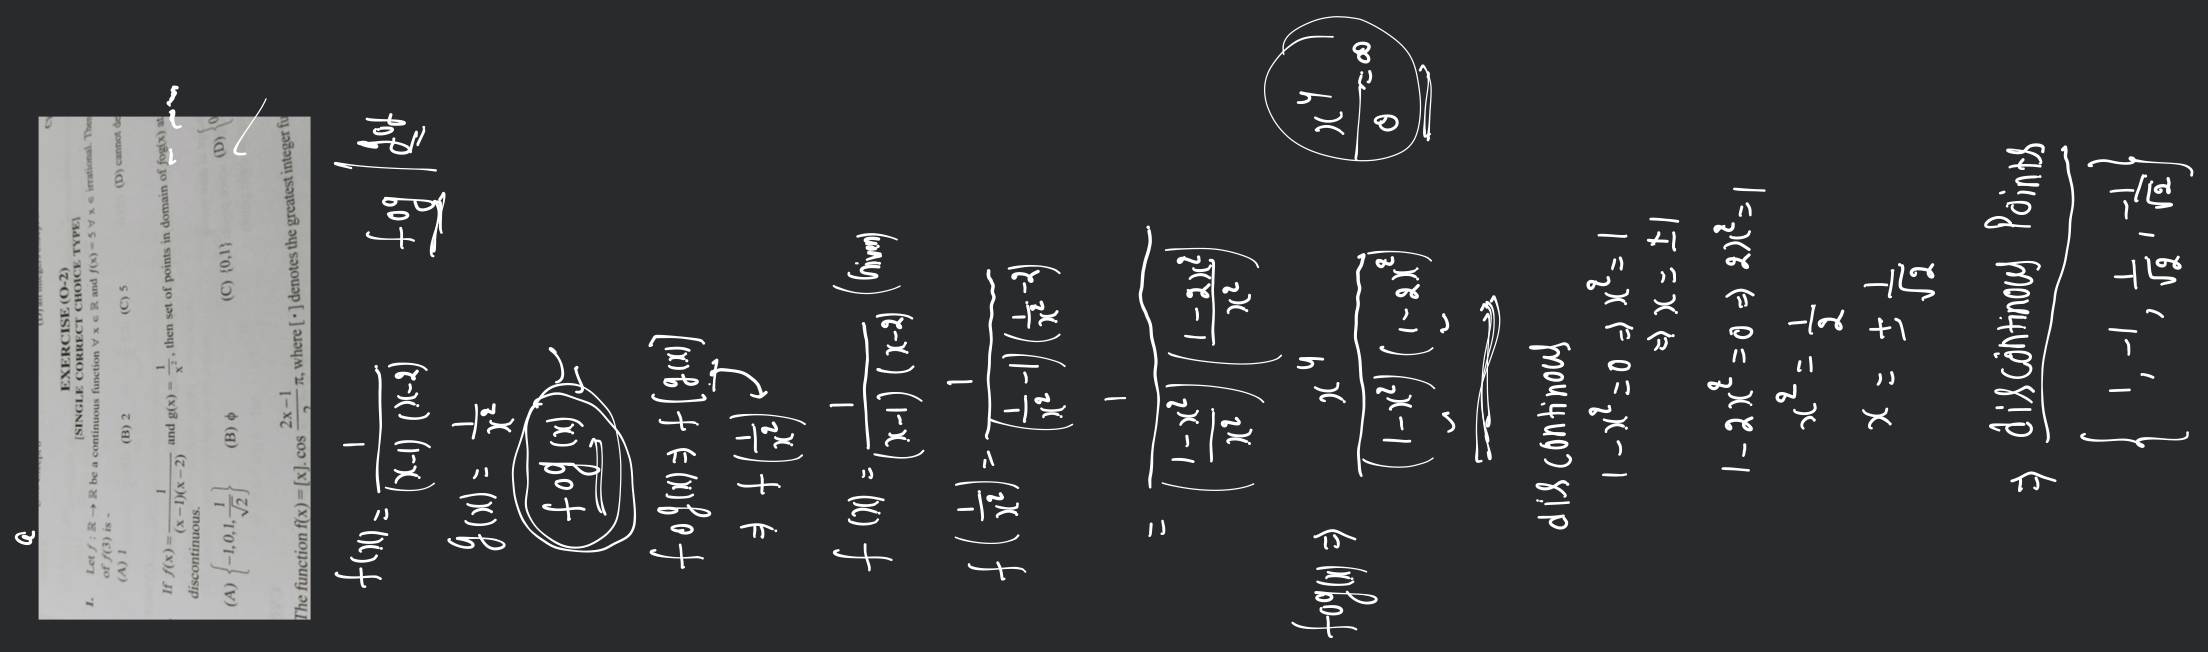 Q
EXERCISE (O-2)
[SINGLE CORRECT CHOICE TYPE]
1. Let f : ℝ → ℝ be a continuous function ∀ x ∈ ℝ and f(x) = 5 ∀ x ∈ irrational. Then
of f(3) is -
(A) 1 (B) 2 (C) 5 (D) cannot de
If f(x) = 1/((x−1)(x−2)) and g(x) = 1/x², then set of points in domain of fog(x) at
discontinuous.
(A) {−1,0,1,1/√2} (B) ϕ (C) {0,1} (D) {0
The function f(x) = [x]. cos (2x−1)/2 π, where [·] denotes the greatest integer fu
f(x) = 1/((x-1)(x-2))
fog | gof
g(x) = 1/x²
fog(x)
fog(x) ⇒ f[g(x)]
⇒ f(1/x²)
f(x) = 1/((x-1)(x-2)) (Given)
f(1/x²) = 1/((1/x²-1)(1/x²-2))
= 1/(((1-x²)/x²)((1-2x²)/x²))
fog(x) ⇒ x⁴/((1-x²)(1-2x²))
x⁴/0 = ∞
discontinous
1-x²=0 ⇒ x²=1
⇒ x = ±1
1-2x²=0 ⇒ 2x²=1
x² = 1/2
x = ± 1/√2
⇒ discontinous Points
{1, -1, 1/√2, -1/√2}